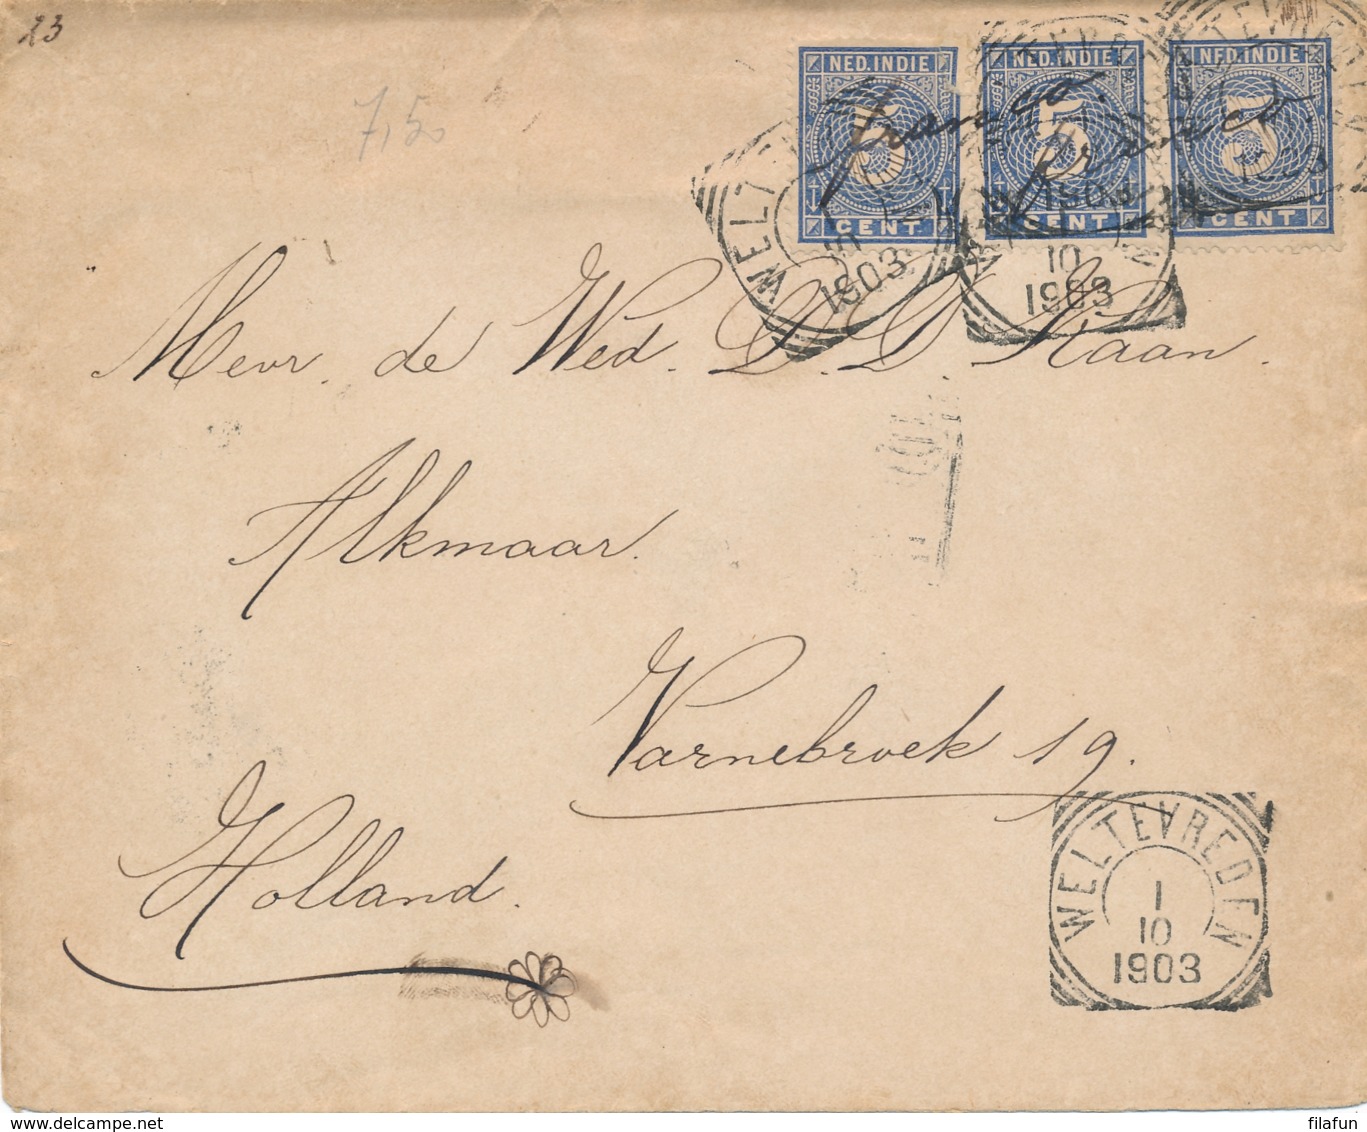 23
7,50
NED.INDIE NED.INDIE NED.INDIE
franco. franco.
5 5 5
CENT CENT CENT
10
1903 1903
Mevr. de Wed. D. D. Kaan.
Alkmaar.
Varnebroek 19.
Holland.
WELTEVREDEN
1
10
1903
delcampe.net
filafun